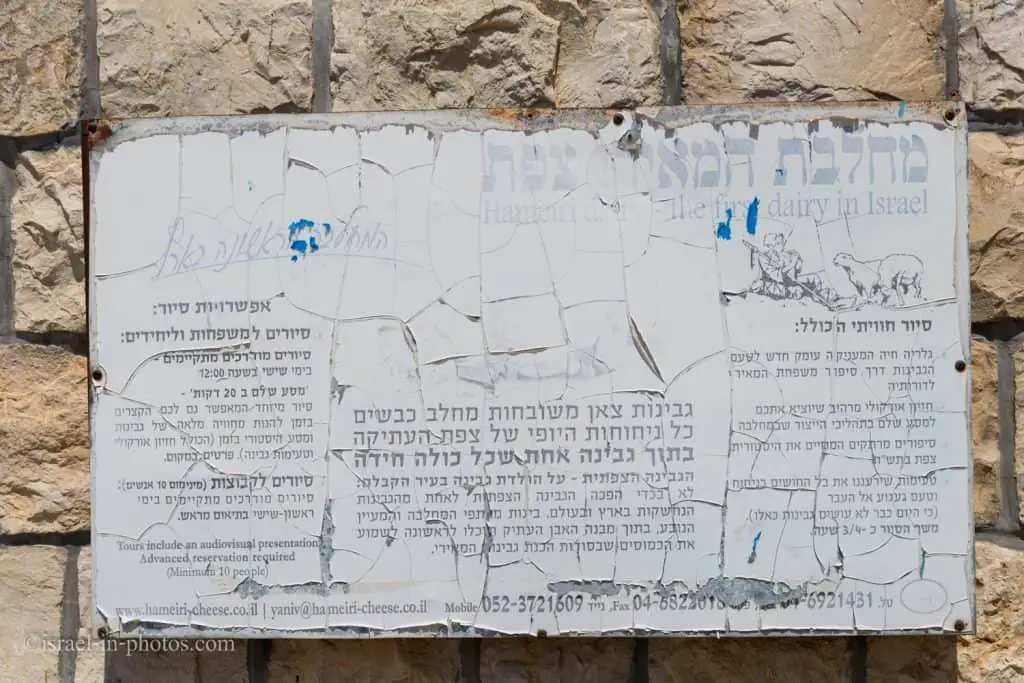 מחלבת המאירי צפת
Hameiri dairy - the first dairy in Israel
סיור חוויתי הכולל:
גלריה חיה המעניקה עומק חדש לטעם
הגבינות דרך סיפור משפחת המאירי
לדורותיה
חזיון אורקולי מרהיב שיוציא אתכם
למסע שלם בתהליכי הייצור שבמחלבה
סיפורים מרתקים המשיים את היסטורית
צפת בתש"ח
טעימות שירעננו את כל החושים בניחוח
וטעם געגוע אל העבר
(כי היום כבר לא עושים גבינות כאלו)
משך הסיור כ -3/4 שעה.
גבינות צאן משובחות מחלב כבשים
כל ניחוחות היופי של צפת העתיקה
בתוך גבינה אחת שכל כולה חידה
הגבינה הצפתית - על הולדת גבינה בעיר הקבלה:
לא בכדי הפכה הגבינה הצפתית לאחת מהגבינות
הנחשקות בארץ ובעולם. בינות מרתפי המחלבה והמעיין
הנובע, בתוך מבנה האבן העתיק תוכלו לראשונה לשמוע
את הכמוסים שבסודות הכנת גבינת המאירי.
המחלבה הראשונה בארץ
אפשרויות סיור:
סיורים למשפחות וליחידים:
סיורים מודרכים מתקיימים -
בימי שישי בשעה 12:00
'מסע שלם ב 20 דקות' -
סיור מיוחד המאפשר גם לכם הקצרים
בזמן להנות מחוויה מלאה של גבינות
ומסע היסטורי בזמן (הכולל חזיון אורקולי
וטעימות גבינה). פרטים במקום.
סיורים לקבוצות (מינימום 10 אנשים):
סיורים מודרכים מתקיימים בימי
ראשון-שישי בתיאום מראש.
Tours include an audiovisual presentation
Advanced reservation required
(Minimum 10 people)
www.hameiri-cheese.co.il | yaniv@hameiri-cheese.co.il Mobile נייד 052-3721609 ,Fax 04-6921431 טל.
©israel-in-photos.com